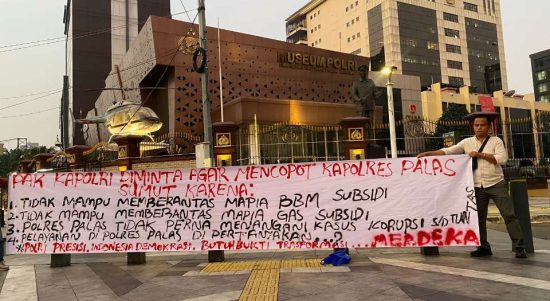 MUSEUM POLRI
PAK KAPOLRI DIMINTA AGAR MENCOPOT KAPOLRES PALAS
SUMUT KARENA:
1. TIDAK MAMPU MEMBERANTAS MAPIA BBM SUBSIDI
2. TIDAK MAMPU MEMBERANTAS MAPIA GAS SUBSIDI
3. POLRES PALAS TIDAK PERNA MENANGANI KASUS KORUPSI S/D TUNTAS
4. PELAYANAN DI POLRES PALAS DI PERTANYAKAN...?
POLRI PRESISI, INDONESIA DEMOKRASI. BUTUH BUKTI TRASFORMASI.... MERDEKA